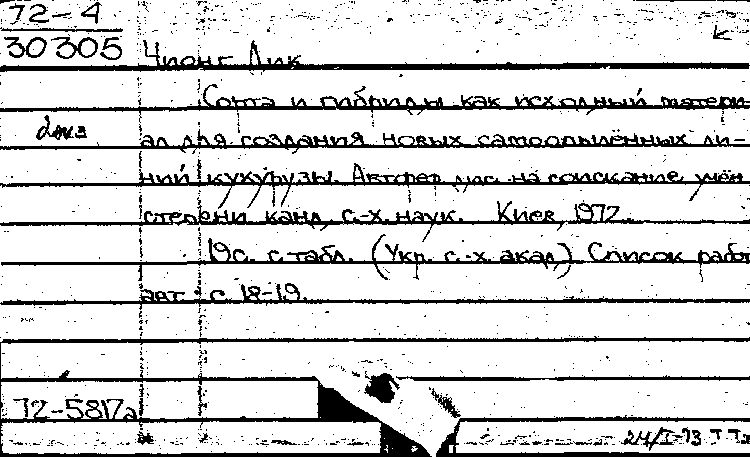 72-4
30305
Чионг Дик
Сорта и гибриды как исходный матери-
2 экз
ал для создания новых самоопылённых ли-
ний кукурузы. Автореф. дис. на соискание учён.
степени канд. с.-х. наук. Киев, 1972.
19с. с табл. (Укр. с.-х. акад.) Список работ
авт.: с. 18-19.
72-5817а
24/I-73